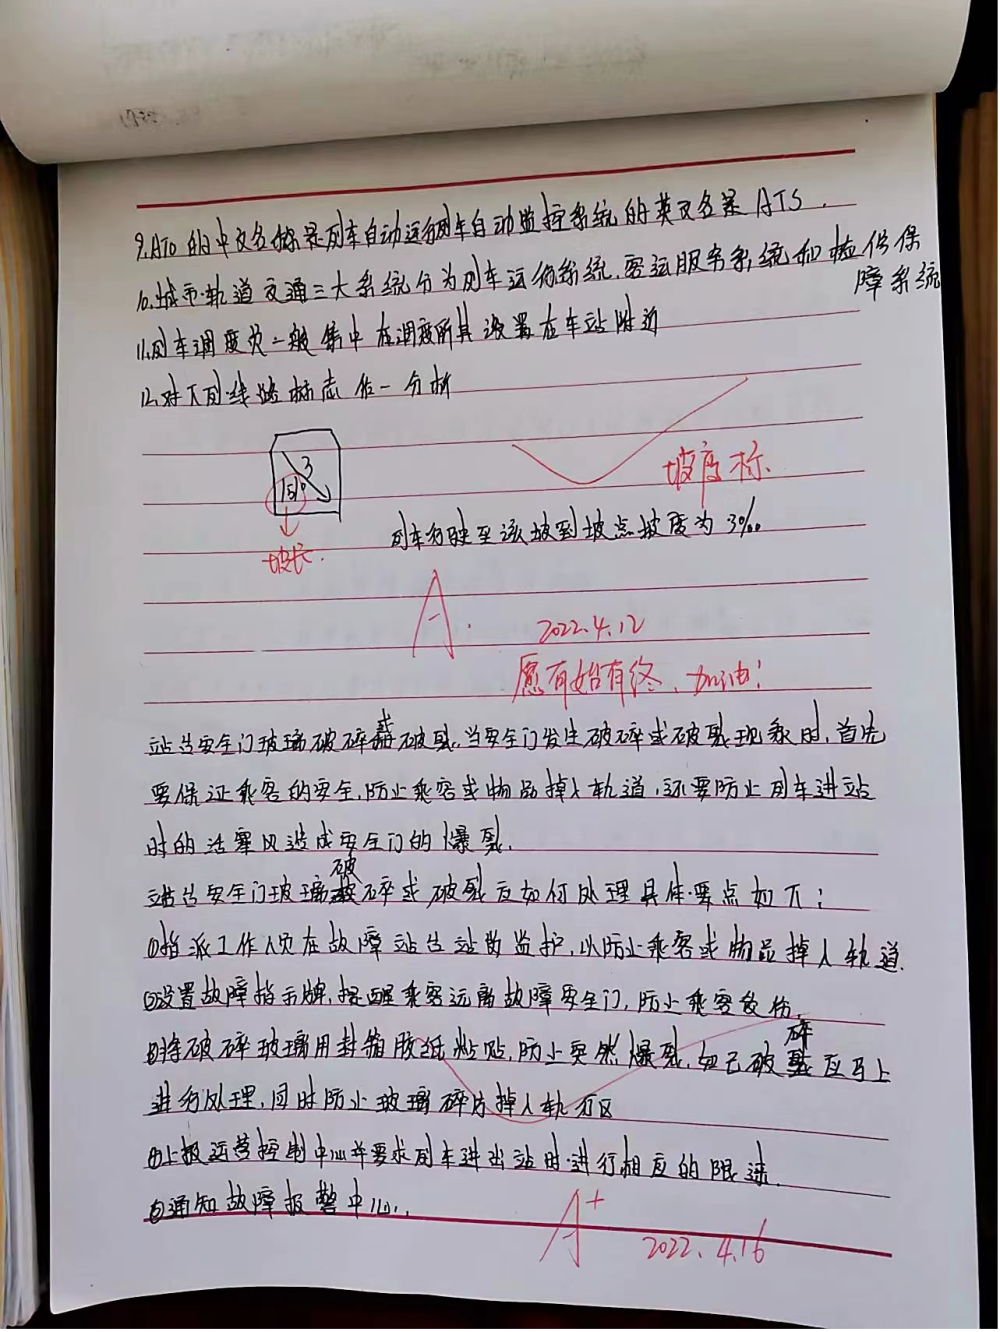 9.ATO的中文名称是列车自动运行列车自动监控系统的英文名是ATS.
10.城市轨道交通三大系统分为列车运行系统.客运服务系统和检修保
障系统
11.列车调度员一般集中在调度所其设置在车站附近
12.对下列线路标志作一分析
3
150
坡长.
坡度标.
列车行驶至该坡到坡点坡度为3‰
A.
2022.4.12
愿有始有终、加油!
站台安全门玻璃破碎或破裂.当安全门发生破碎或破裂现象时,首先
要保证乘客的安全,防止乘客或物品掉入轨道,还要防止列车进站
时的活塞风造成安全门的爆裂.
站台安全门玻璃破碎或破裂应如何处理具体要点如下:
①指派工作人员在故障站台站岗监护,以防止乘客或物品掉入轨道.
②设置故障指示牌,提醒乘客远离故障安全门,防止乘客受伤.
③将破碎玻璃用封箱胶纸粘贴,防止突然爆裂,如已破碎应马上
进行处理,同时防止玻璃碎片掉入轨行区
④上报运营控制中心并要求列车进出站时进行相应的限速.
⑤通知故障报警中心.
A+
2022.4.16